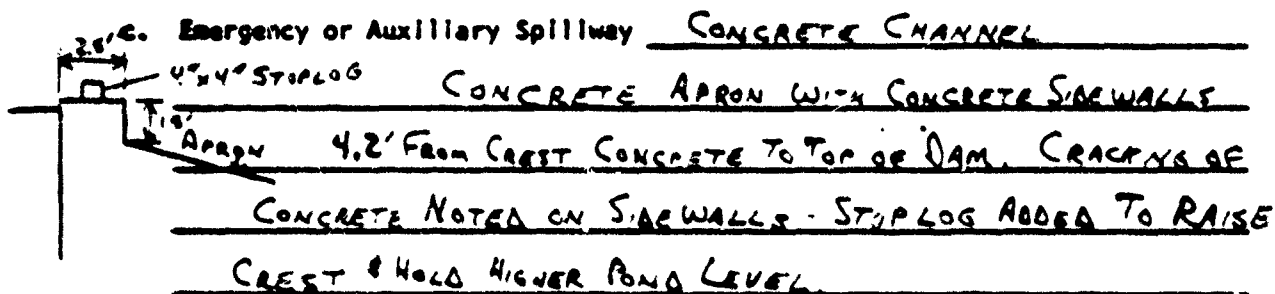 c. Emergency or Auxiliary Spillway CONCRETE CHANNEL
2.8'
4"x4" STOPLOG
CONCRETE APRON WITH CONCRETE SIDEWALLS
1.8'
APRON
4.2' FROM CREST CONCRETE TO TOP OF DAM. CRACKING OF
CONCRETE NOTED ON SIDEWALLS - STOPLOG ADDED TO RAISE
CREST & HOLD HIGHER POND LEVEL.